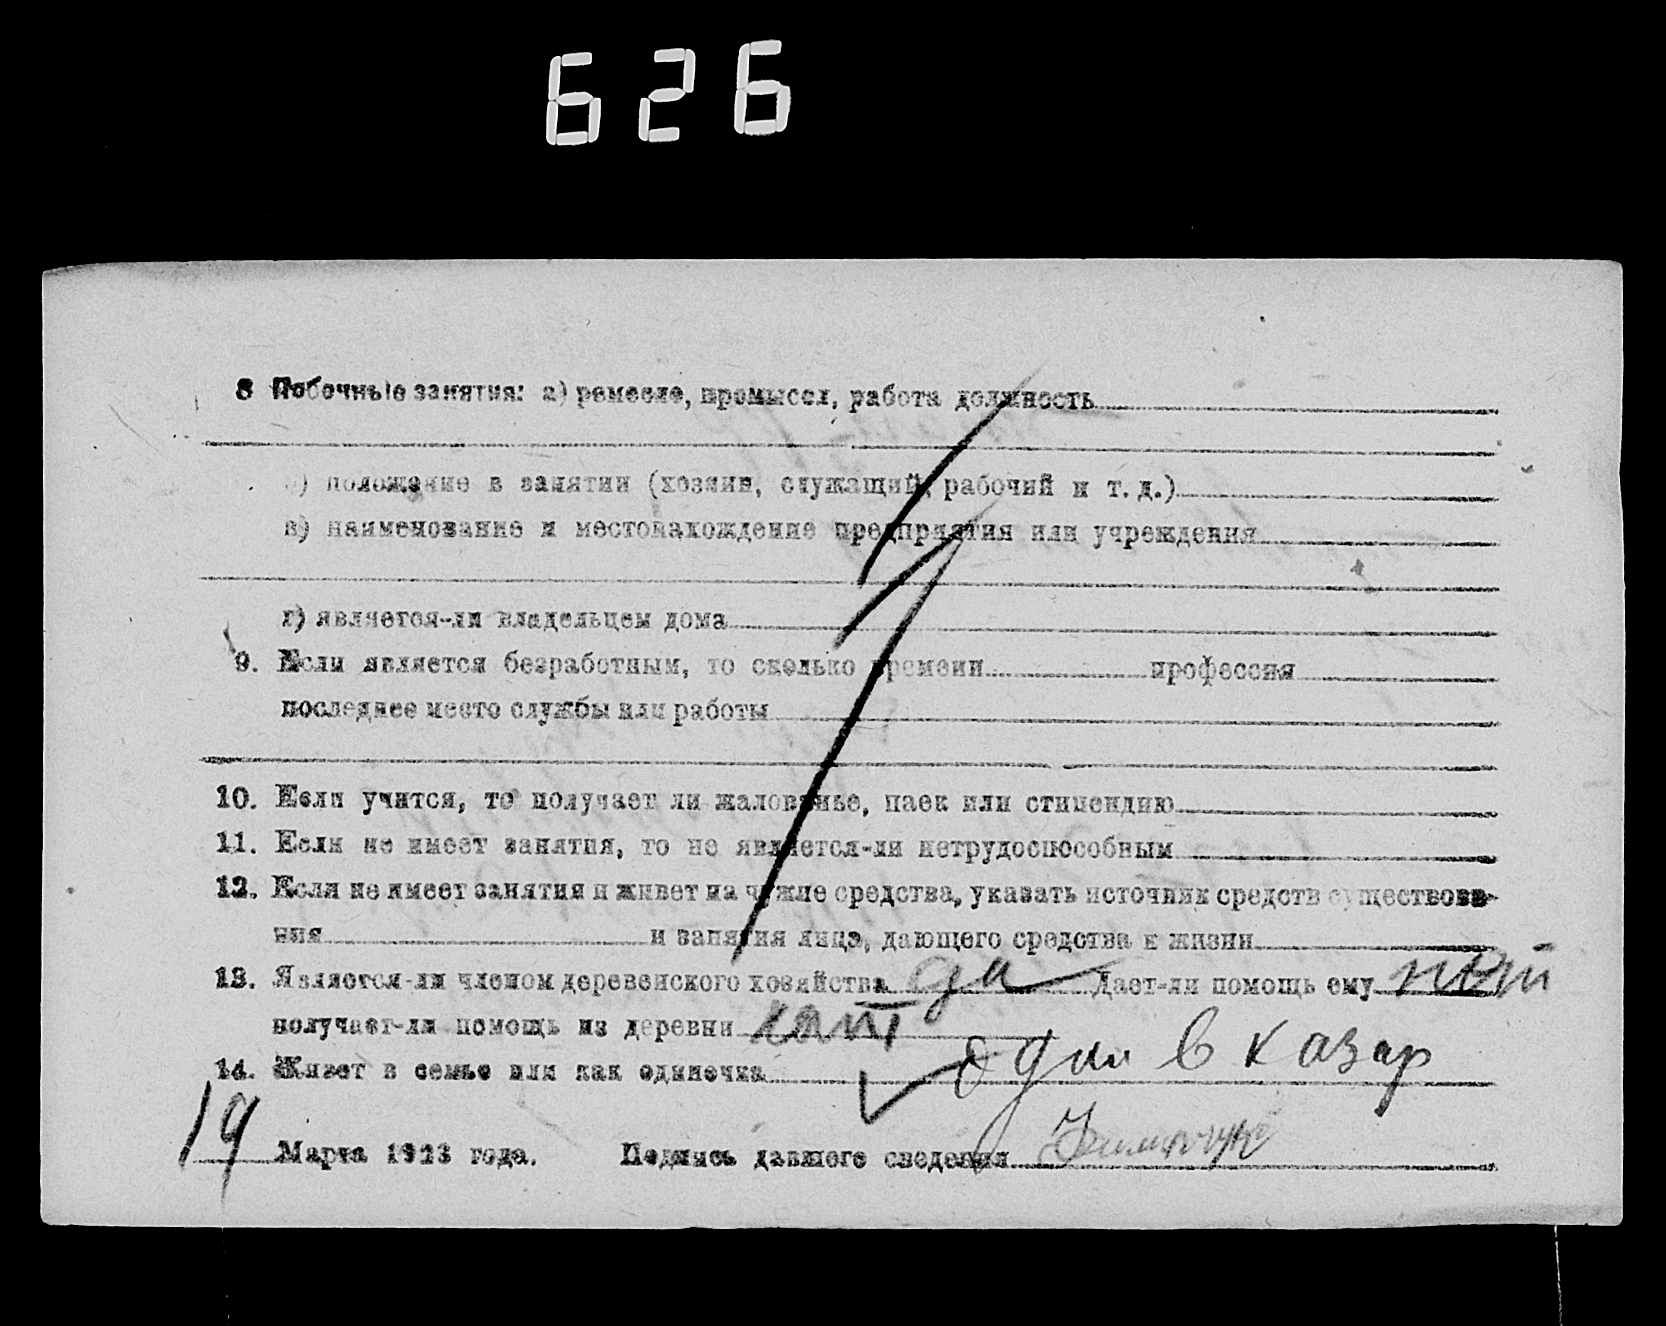 626
8 Побочные занятия: а) ремесло, промысел, работа должность
б) положение в занятии (хозяин, служащий, рабочий и т. д.)
в) наименование и местонахождение предприятия или учреждения
г) является-ли владельцем дома
9. Если является безработным, то сколько времени профессия
последнее место службы или работы
10. Если учится, то получает ли жалованье, паек или стипендию
11. Если не имеет занятия, то не является-ли нетрудоспособным
12. Если не имеет занятия и живет на чужие средства, указать источник средств существова-
ния и занятия лица, дающего средства к жизни
13. Является-ли членом деревенского хозяйства да Дает-ли помощь ему нет
получает-ли помощь из деревни нет
14. Живет в семье или как одиночка один в казар
19 Марта 1923 года. Подпись давшего сведения